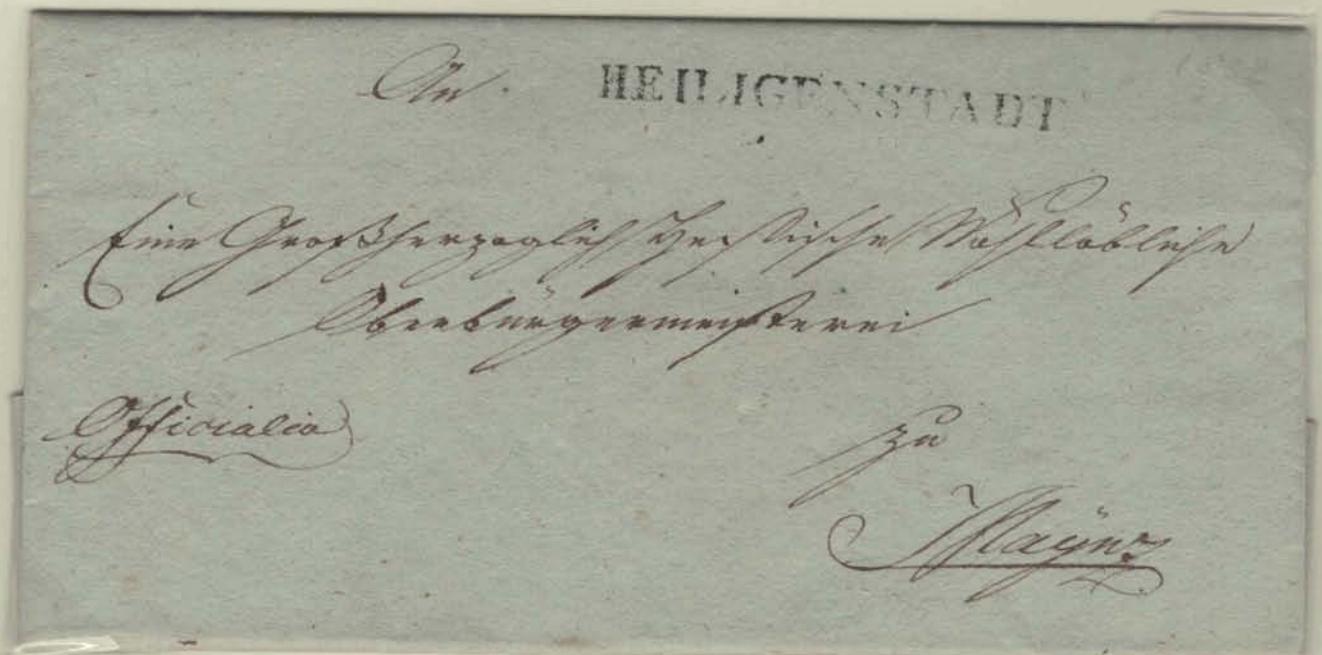 An HEILIGENSTADT
Eine Großherzoglich Hessische Wohllöbliche
Oberbürgermeisterei
Officialia
zu
Maÿnz